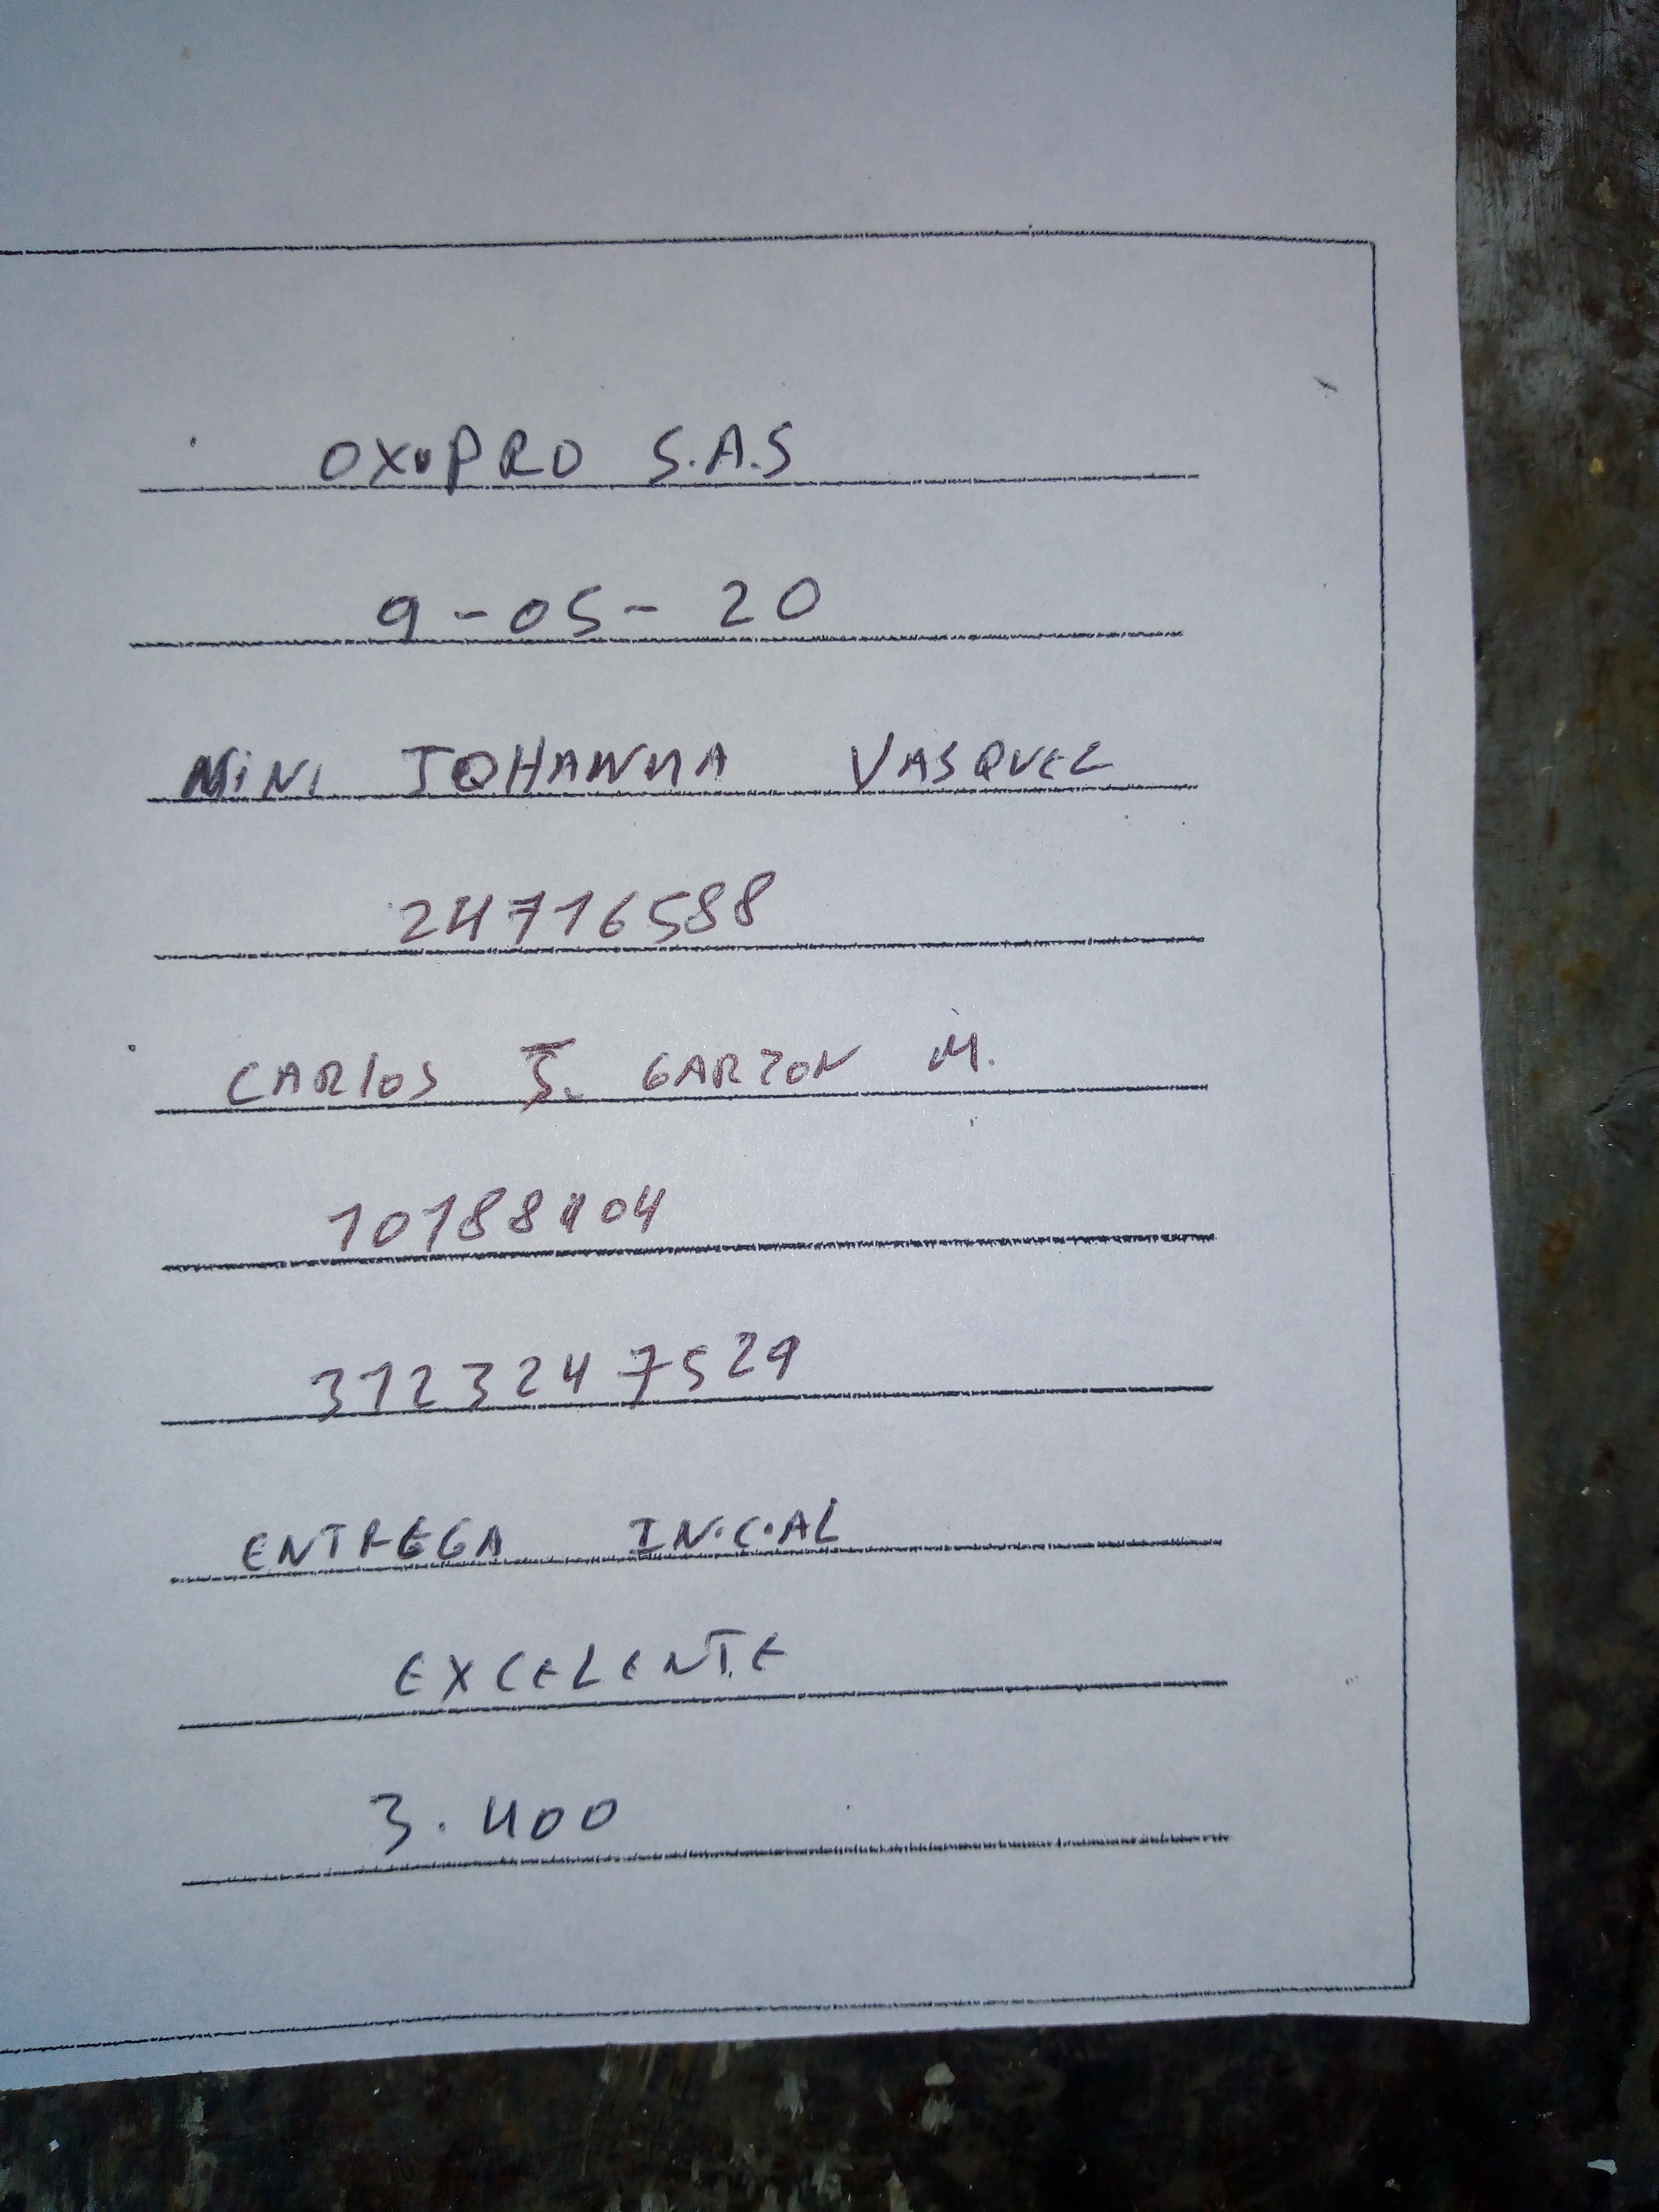 OXIPRO S.A.S
9-05-20
NINI JOHANNA VASQUEZ
24716588
CARLOS J. GARZON M.
3123247529
ENTREGA INICIAL
EXCELENTE
3.400